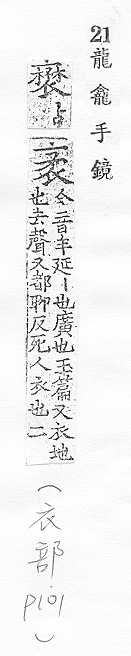 21 龍龕手鏡
今二音 延丨也廣也玉篇又衣地
也去聲又都聊反死人衣也二
(衣部 p101)